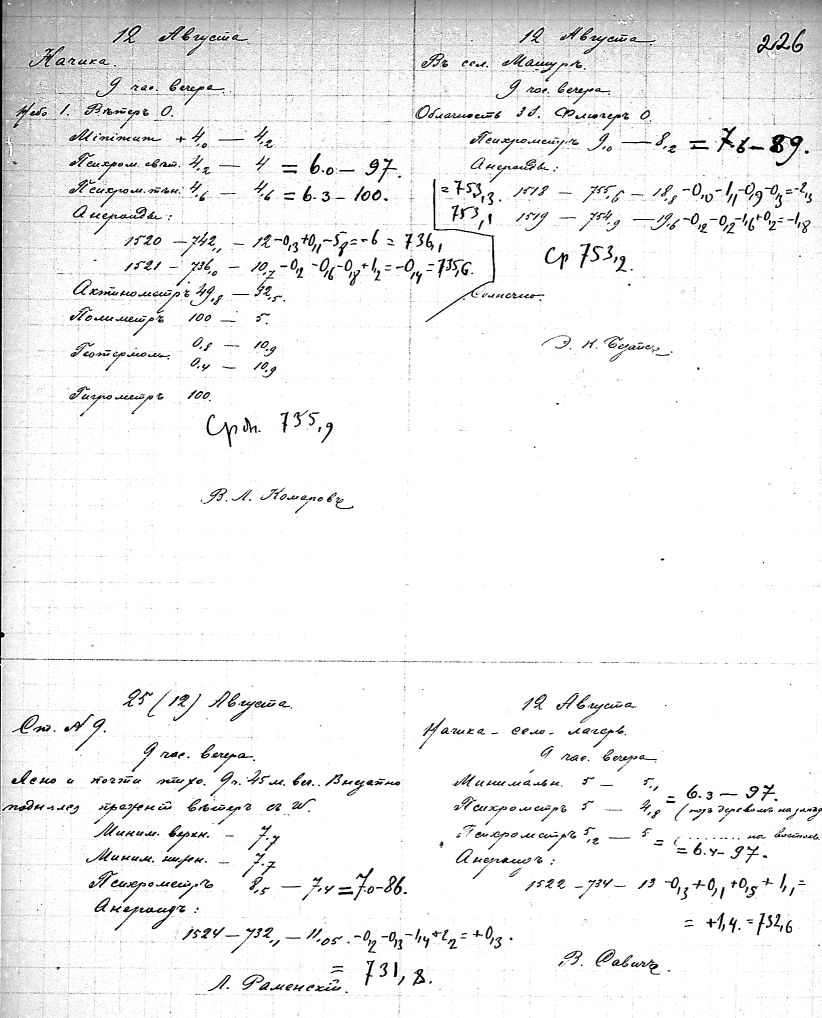 226
12 Августа.
Начика.
9 час. вечера.
Небо 1. Вѣтеръ 0.
Minimum +4,0 — 4,2
Психром. свѣт. 4,2 — 4 = 6.0 — 97.
Психром. тѣн. 4,6 — 4,6 = 6.3 — 100.
Анероиды:
1520 — 742,1 — 12 -0,3+0,1-5,8=-6 = 736,1
1521 — 736,0 — 10,7 -0,2 -0,6 -0,8 +1,2 = -0,4 = 735,6.
Актинометръ 49,8 — 32,5.
Полиметръ 100 — 5.
Геотермом. 0.8 — 10,9
0.4 — 10,9
Гигрометръ 100.
Срдн. 735,9
В. Л. Комаровъ
12 Августа.
Въ сел. Машурѣ.
9 час. вечера.
Облачность 3S. Флюгеръ 0.
Психрометръ 9,0 — 8,2 = 7.6 — 89.
Анероиды:
=753,3. 1518 — 755,6 — 18,8 -0,0 -1,1 -0,9 -0,3 = -2,3
753,1 1519 — 754,9 — 19,6 -0,2 -0,2 -1,6 +0,2 = -1,8
Ср 753,2.
Солнечно.
25 (12) Августа.
Ст. N 9.
9 час. вечера.
Ясно и почти тихо. 9 ч. 45 м. веч. Внезапно
поднялся вѣтеръ съ W.
Миним. верхн. — 7,7
Миним. нижн. — 7,7
Психрометръ 8,5 — 7,4 = 7.0 - 86.
Анероидъ:
1524 — 732,1 — 11,05. -0,2 -0,3 -1,4 +2,2 = +0,3.
= 731,8.
Л. Раменскій.
12 Августа
Начика — село — лагерь.
9 час. вечера
Минимальн. 5 — 5,1
= 6.3 — 97.
Психрометръ 5 — 4,8 (подъ деревомъ на запад
Психрометръ 5,2 — 5 = ( ......... на востокъ
= 6.4 - 97.
Анероидъ:
1522 — 734 — 13 -0,3 +0,1 +0,5 + 1,1 =
= +1,4. = 732,6
В. Савичъ.